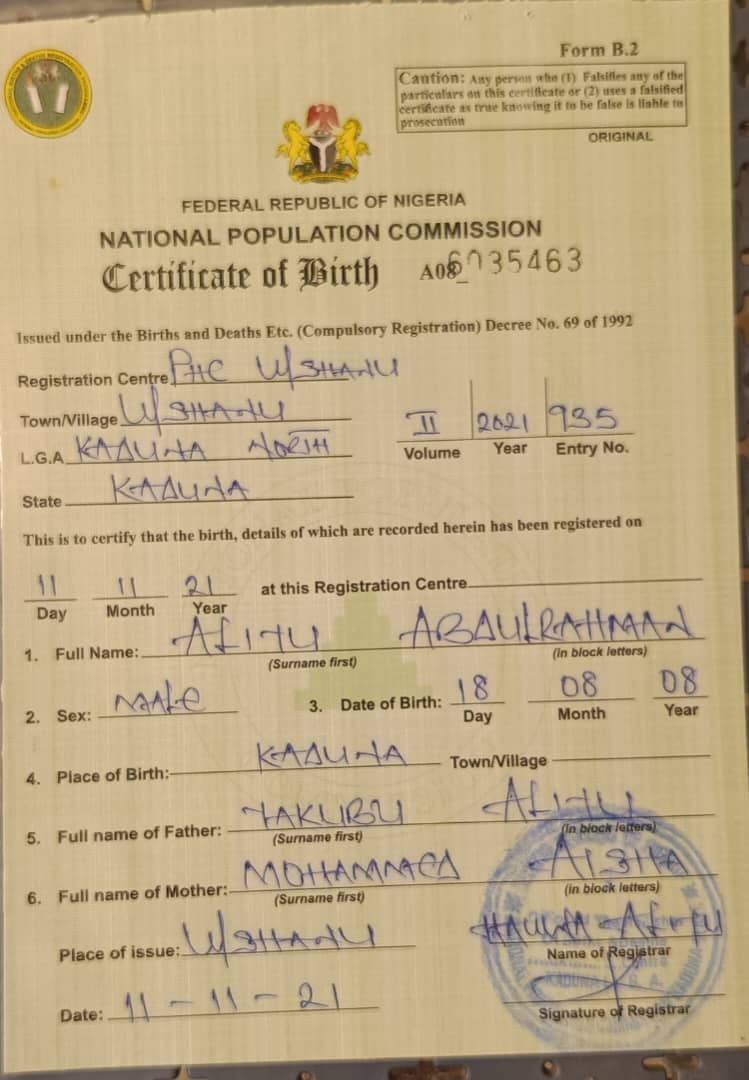 Form B.2
Caution: Any person who (1) Falsifies any of the
particulars on this certificate or (2) uses a falsified
certificate as true knowing it to be false is liable to
prosecution
ORIGINAL
FEDERAL REPUBLIC OF NIGERIA
NATIONAL POPULATION COMMISSION
Certificate of Birth A08 6035463
Issued under the Births and Deaths Etc. (Compulsory Registration) Decree No. 69 of 1992
Registration Centre PHC U/SHANU
Town/Village U/SHANU
L.G.A KADUNA NORTH
II 2021 935
Volume Year Entry No.
State KADUNA
This is to certify that the birth, details of which are recorded herein has been registered on
11 11 21 at this Registration Centre
Day Month Year
1. Full Name: ALIYU ABDULRAHMAN
(Surname first) (in block letters)
2. Sex: MALE 3. Date of Birth: 18 08 08
Day Month Year
4. Place of Birth: KADUNA Town/Village
5. Full name of Father: YAKUBU ALIYU
(Surname first) (in block letters)
6. Full name of Mother: MOHAMMED AISHA
(Surname first) (in block letters)
Place of issue: U/SHANU HAUWA ALIYU
Name of Registrar
Date: 11-11-21
Signature of Registrar